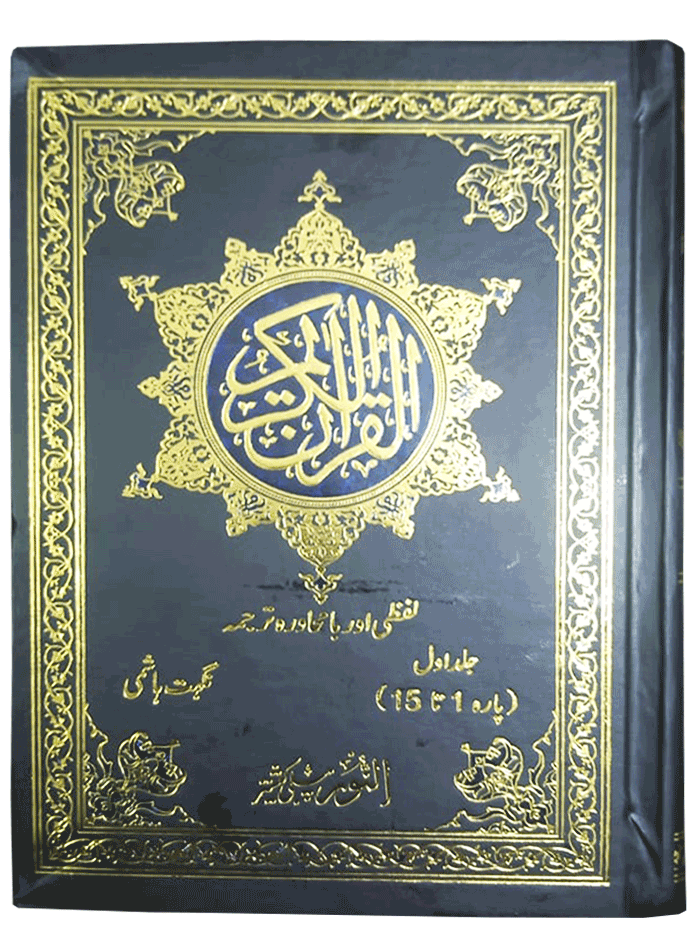 القرآن الكريم
لفظی اور بامحاورہ ترجمہ
جلد اول
(پارہ 1 تا 15)
نگہت ہاشمی
النور پبلی کیشنز